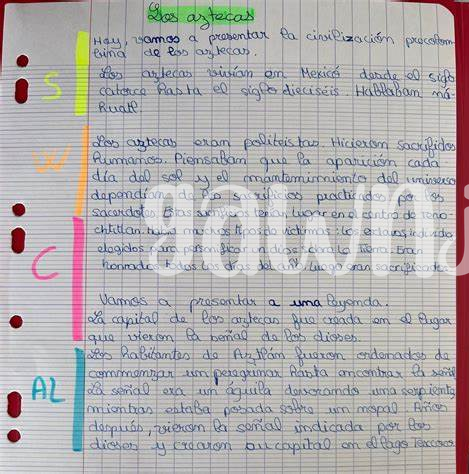 Los aztecas
Hoy, vamos a presentar la civilización precolom-
bina de los aztecas.
S
Los aztecas vivían en Mexicó desde el siglo
catorce hasta el siglo dieciséis. Hablaban ná-
huatl
W
Los aztecas eran politeistas. Hicieron sacrificios
humanos. Piensaban que la aparición cada
día del sol y el mantenimiento del universo
dependían de los sacrificios practicados por los
sacerdotes. Estas tenían lugar en el centro de Teno-
chtitlan. había muchos tipos de victimas : los esclavos
elegidos para personificar un dios sobre la tierra. Eran
honrados todos los días del luego eran sacrificados
C
Vamos a presentar a una leyenda.
La capital de los aztecas fue creada en el lugar
que vieron la señal de los dioses.
Los habitantes de Aztlán fueron ordenados de
commenzar un peregrinar hasta encontrar la señal
AL
La señal era un águila devorando una serpiente
mientras estaba posada sobre un nopal. Años
después, vieron la señal indicada por los
dioses y crearon su capital en el lago Texcoco.